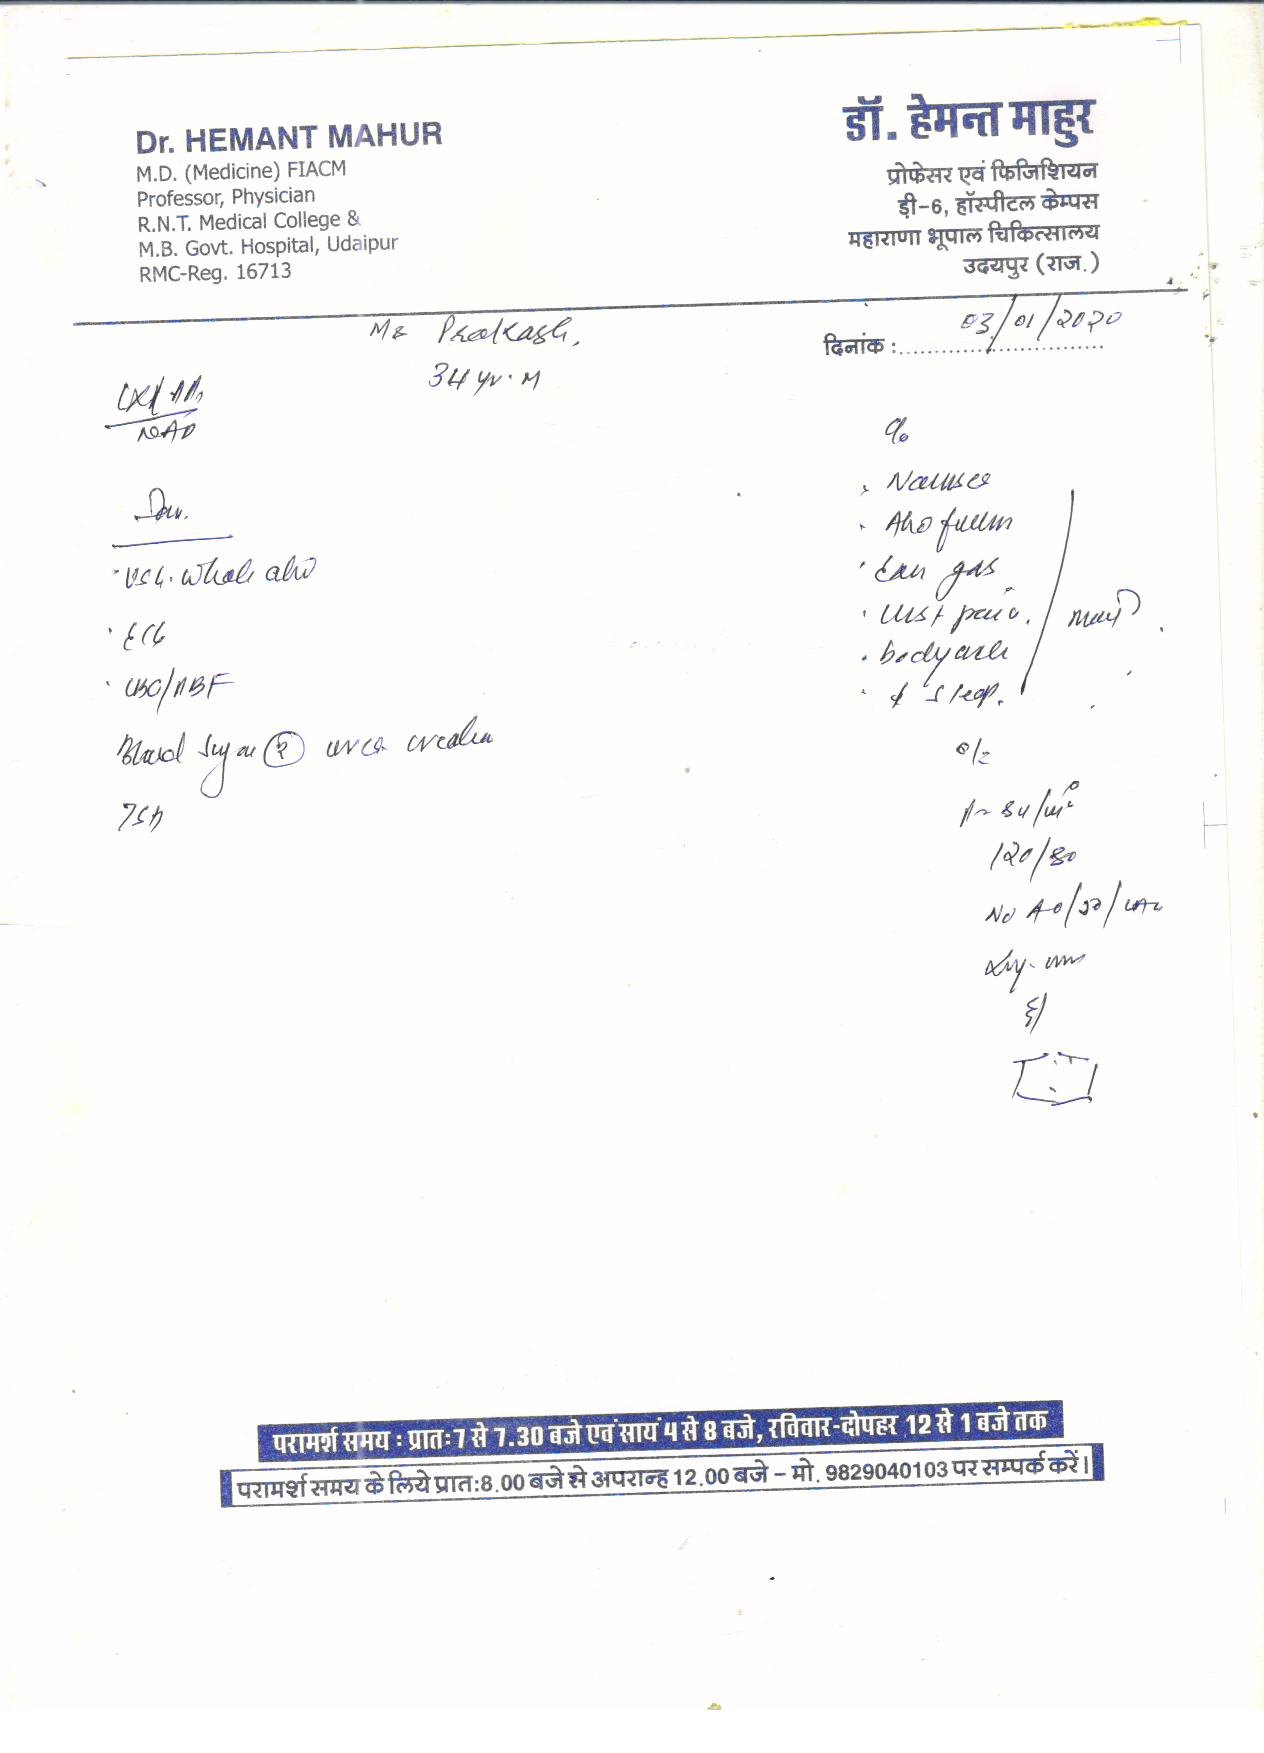 Dr. HEMANT MAHUR
M.D. (Medicine) FIACM
Professor, Physician
R.N.T. Medical College &
M.B. Govt. Hospital, Udaipur
RMC-Reg. 16713
डॉ. हेमन्त माहुर
प्रोफेसर एवं फिजिशियन
ड़ी-6, हॉस्पीटल केम्पस
महाराणा भूपाल चिकित्सालय
उदयपुर (राज.)
Mr Prakash,
34 yr. M
दिनांक : 03/01/2020
NAD
USG. whole abd
ECG
CBC/PBF
Blood Sugar (R) urea
TSH
c/o
Nausea
Abd
gas
pain
bodyache
↓ sleep.
o/e
P- 84/m
120/80
No
परामर्श समय : प्रातः 7 से 7.30 बजे एवं सायं 4 से 8 बजे, रविवार-दोपहर 12 से 1 बजे तक
परामर्श समय के लिये प्रात:8.00 बजे से अपरान्ह 12.00 बजे – मो. 9829040103 पर सम्पर्क करें।